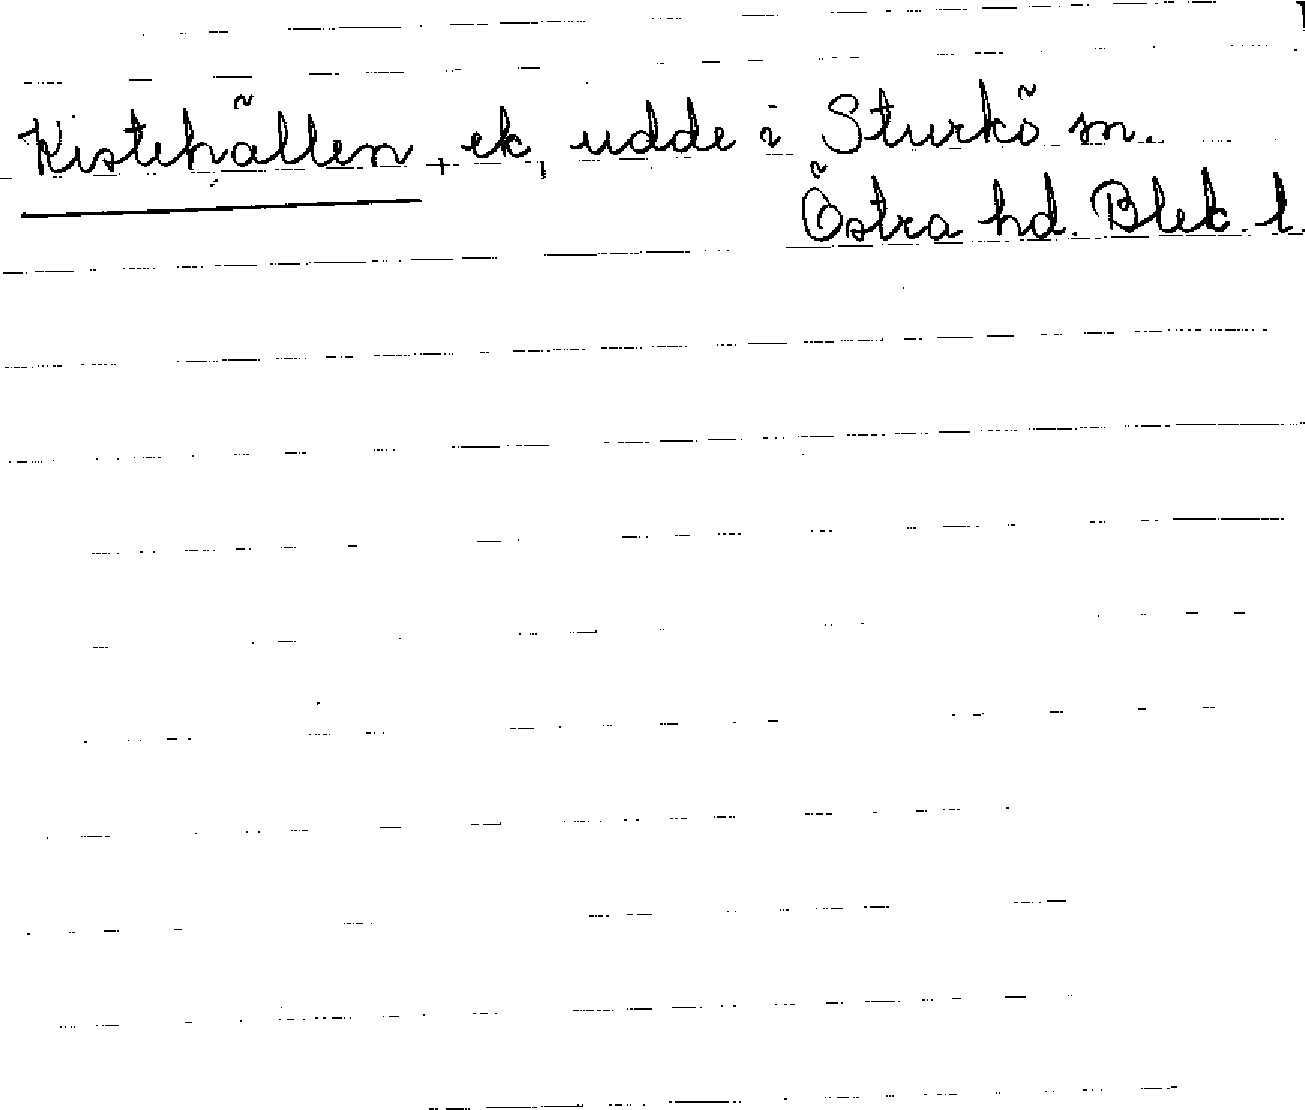 Kistehällen, ek, udde i Sturkö sn.
Östra hd. Blek. l.